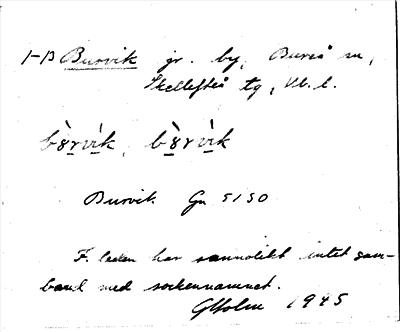 1-13 Burvik gr. by, Bureå sn,
Skellefteå tg, Vb. l.
bò̱rvì̱k, bò̱rvi̱k
Burvik Gn 5150
F. leden har sannolikt intet sam-
band med sockennamnet.
GHolm 1945